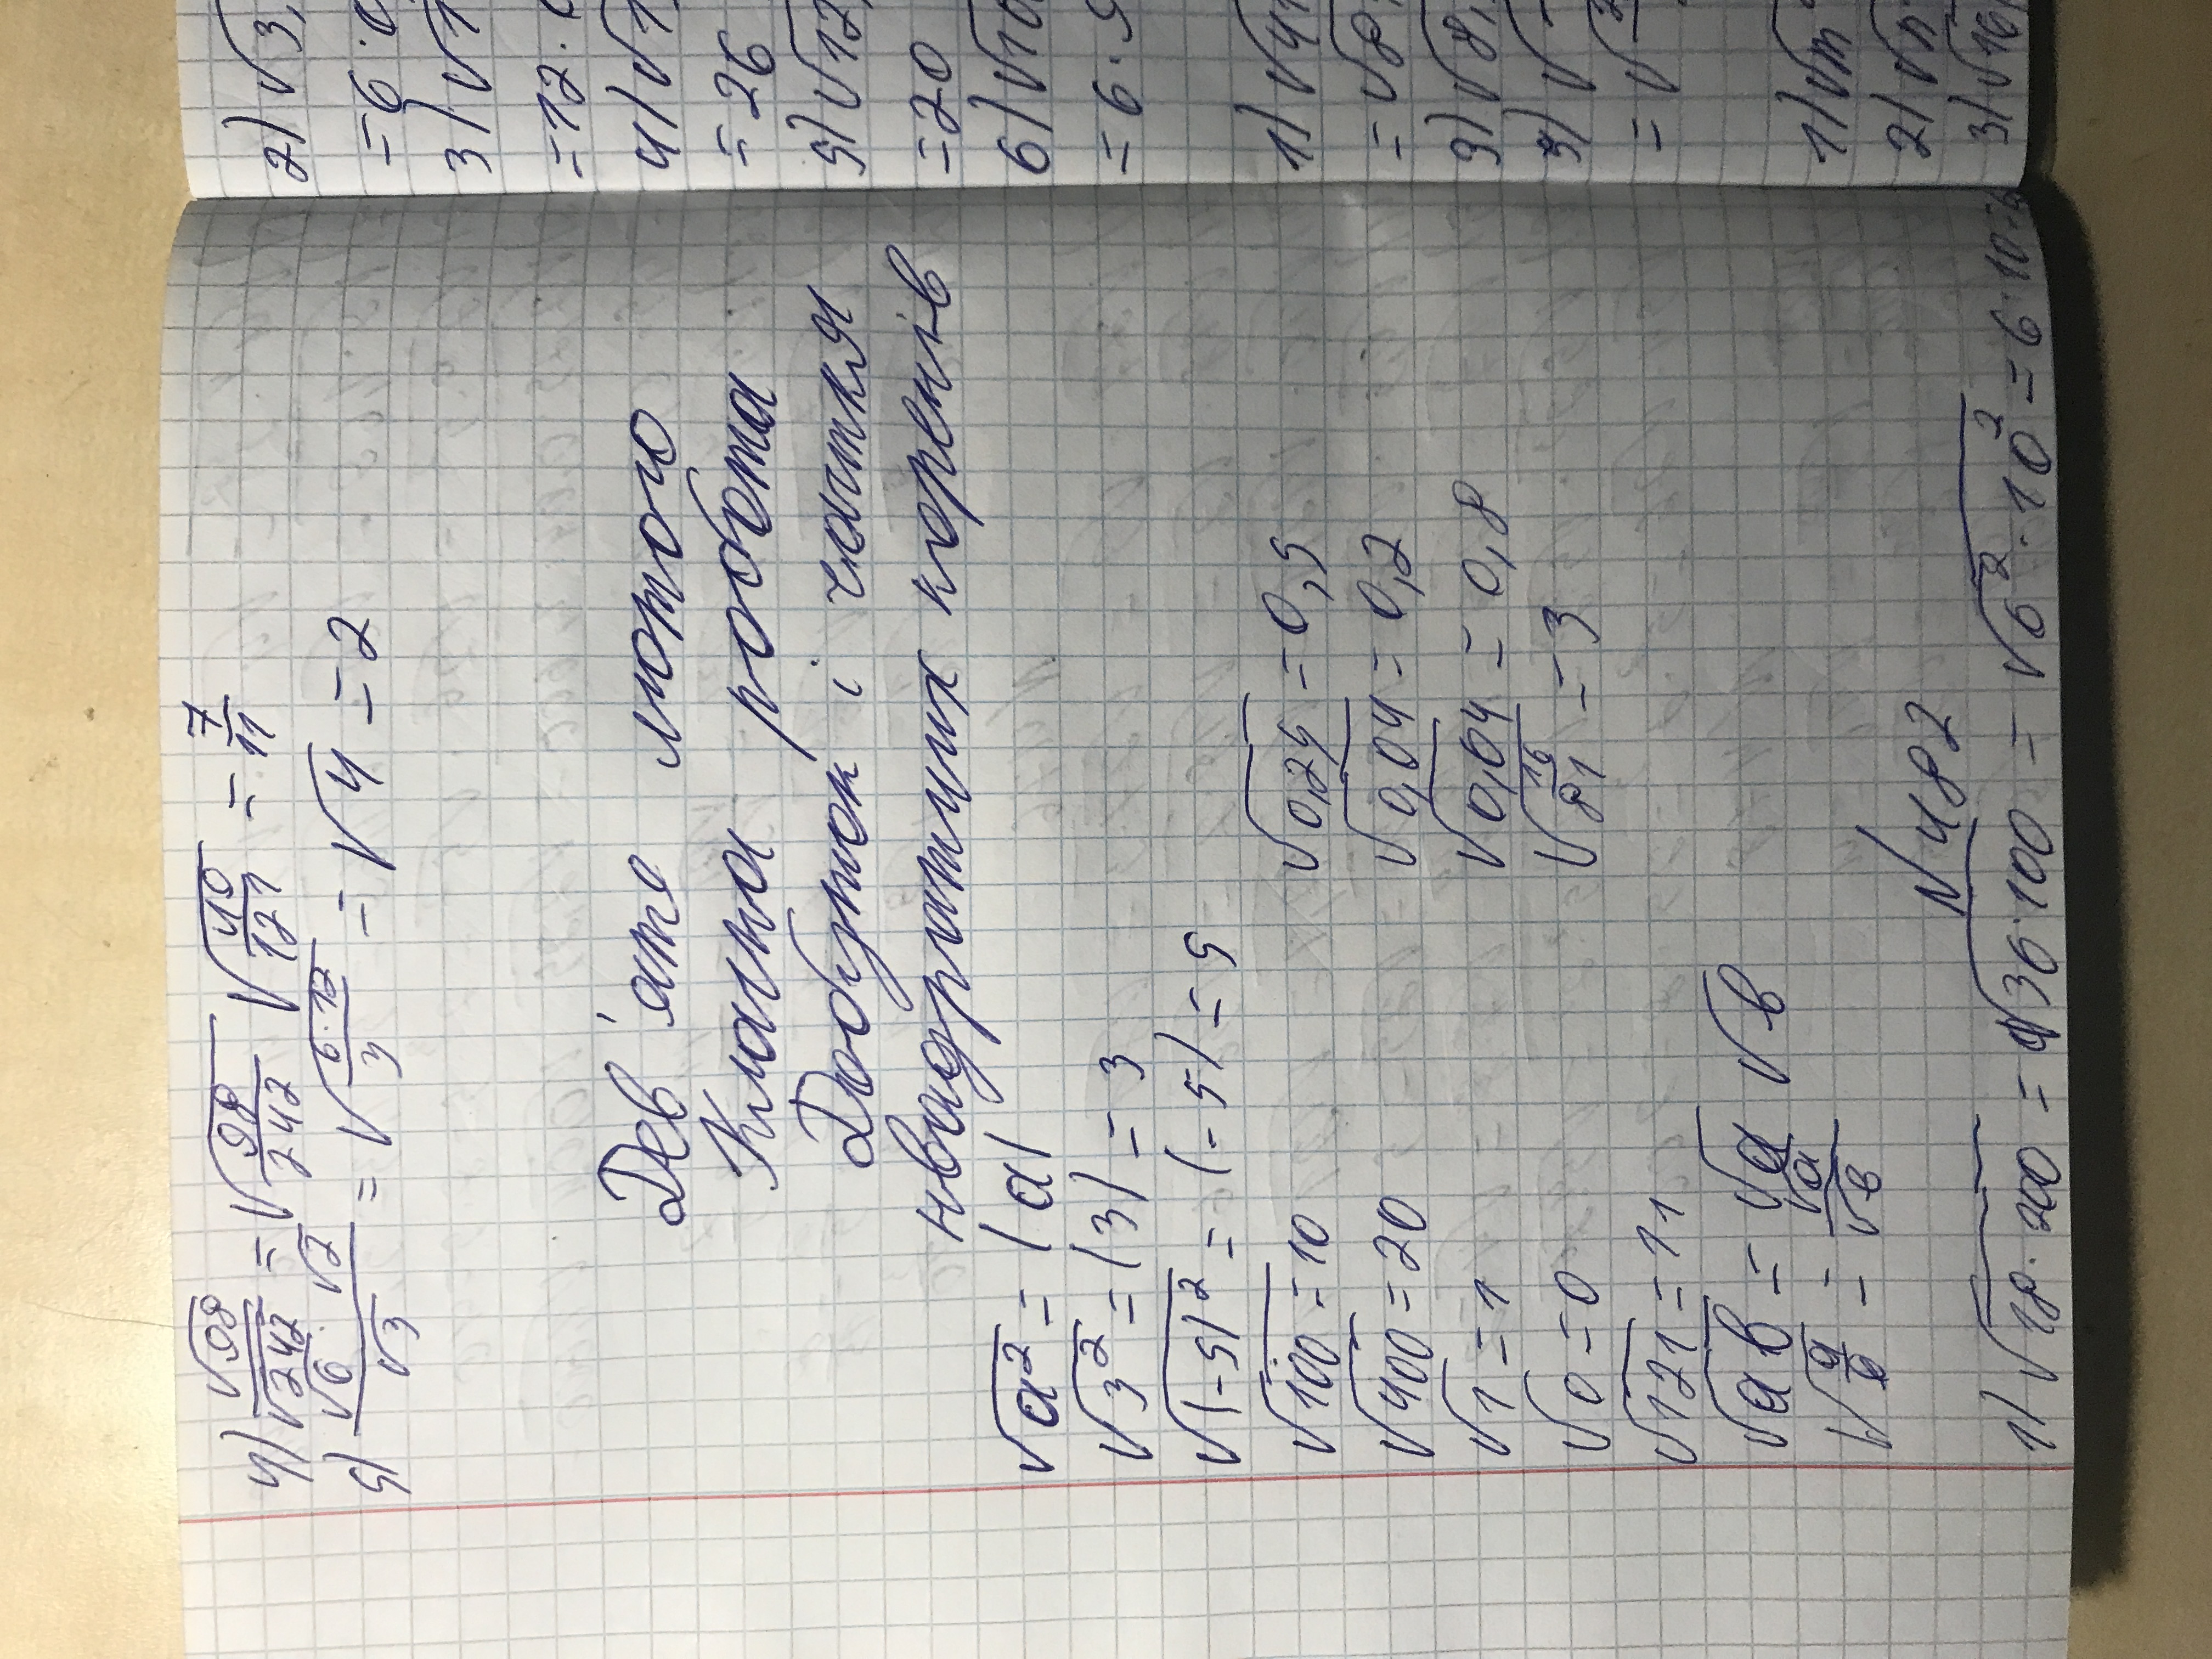 4) √98/√242 = √(98/242) √(49/121) = 7/11
5) √6·√2/√3 = √(6·12/3) = √4 = 2
Дев'яте лютого
Класна робота
Добуток і частка
квадратних коренів
√a² = |a|
√3² = |3| = 3
√(-5)² = |-5| = 5
√100 = 10
√400 = 20
√1 = 1
√0 = 0
√121 = 11
√0,25 = 0,5
√0,04 = 0,2
√0,64 = 0,8
√(ab) = √a √b
√(a/b) = √a/√b
№482
1) √18·200 = √36·100 = √6²·10² = 6·10=
2) √3,
= 6·
3) √1
= 12·
4) √1
= 26
5) √12,
= 20
6) √10
= 6·5
1) √41
= √8
3) √8,
5) √
= √
1) √m
2) √n
3) √16